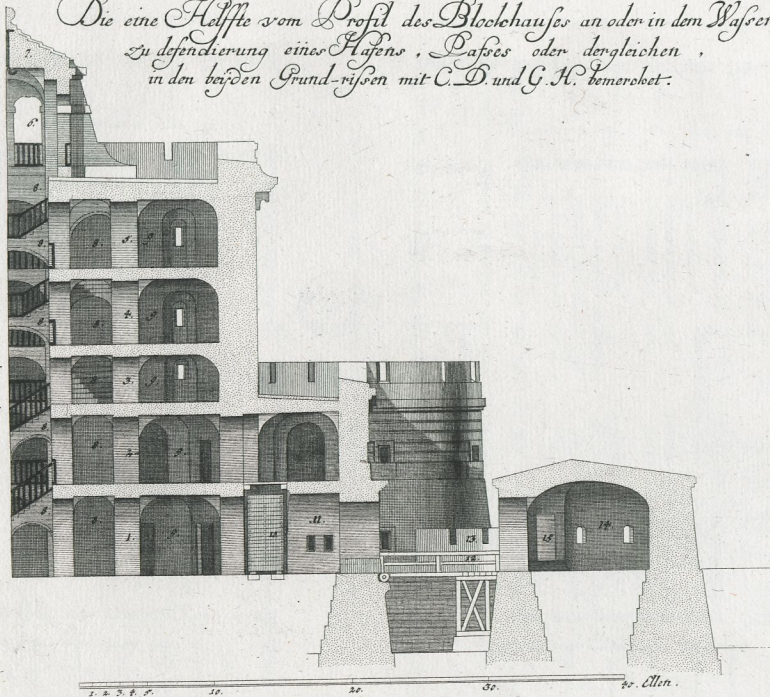 Die eine Helffte vom Profil des Blockhauses an oder in dem Wasser
zu defendierung eines Hafens, Passes oder dergleichen,
in den beÿden Grund-rissen mit C. D. und G. H. bemercket.
7.
6.
8.
8. 8. 5. 9.
8. 8. 4. 9.
8. 3. 9.
8. 8. 2. 9.
8. 8. 1. 9. 11. 13. 15. 14.
12.
1. 2. 3. 4. 5. 10. 20. 30. 40. Ellen.